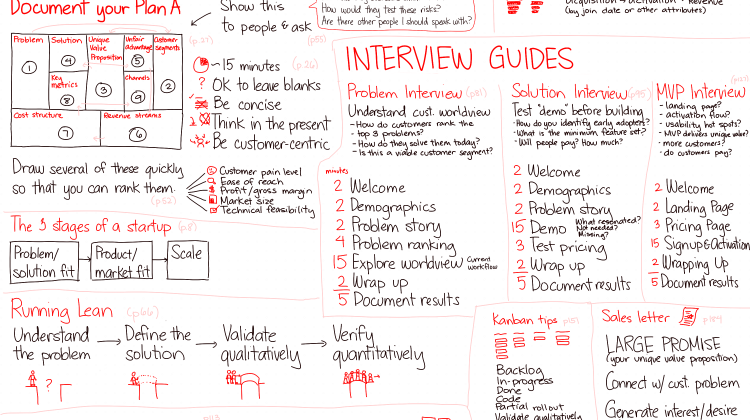 Document your Plan A
Show this
to people & ask
How would they test these risks?
Are there other people I should speak with?
(by join date or other attributes)
Problem
1
Solution
4
Key
metrics
8
Unique
Value
Proposition
3
Unfair
advantage
5
Channels
9
Customer
Segments
2
Cost structure
7
Revenue streams
6
~15 minutes (p.26)
? OK to leave blanks
Be concise
Think in the present
Be customer-centric
Draw several of these quickly
so that you can rank them.
(p52)
Customer pain level
Ease of reach
$ Profit/gross margin
Market size
Technical feasibility
The 3 stages of a startup (p8)
Problem/
solution fit
Product/
market fit
Scale
Running Lean (p66)
Understand
the problem
?
Define the
solution
Validate
qualitatively
Verify
quantitatively
INTERVIEW GUIDES
Problem Interview (p81)
Understand cust. worldview
- How do customers rank the
top 3 problems?
- How do they solve them today?
- Is this a viable customer segment?
minutes
2 Welcome
2 Demographics
2 Problem story
4 Problem ranking
15 Explore worldview Current
workflow
2 Wrap up
5 Document results
Solution Interview (p95)
Test "demo" before building
- How do you identify early adopters?
- What is the minimum feature set?
- Will people pay? How much?
2 Welcome
2 Demographics
2 Problem story
15 Demo What resonated?
Not needed?
Missing?
3 Test pricing
2 Wrap up
5 Document results
MVP Interview
- landing page?
- activation flow?
- usability hot spots?
- MVP delivers unique value?
- more customers?
- do customers pay?
2 Welcome
2 Landing Page
3 Pricing Page
15 Signup & Activation
2 Wrapping Up
5 Document results
Kanban tips
Backlog
In-progress
Done
Code
Partial rollout
Validate qualitatively
Sales letter
LARGE PROMISE
(your unique value proposition)
Connect w/ cust. problem
Generate interest/desire